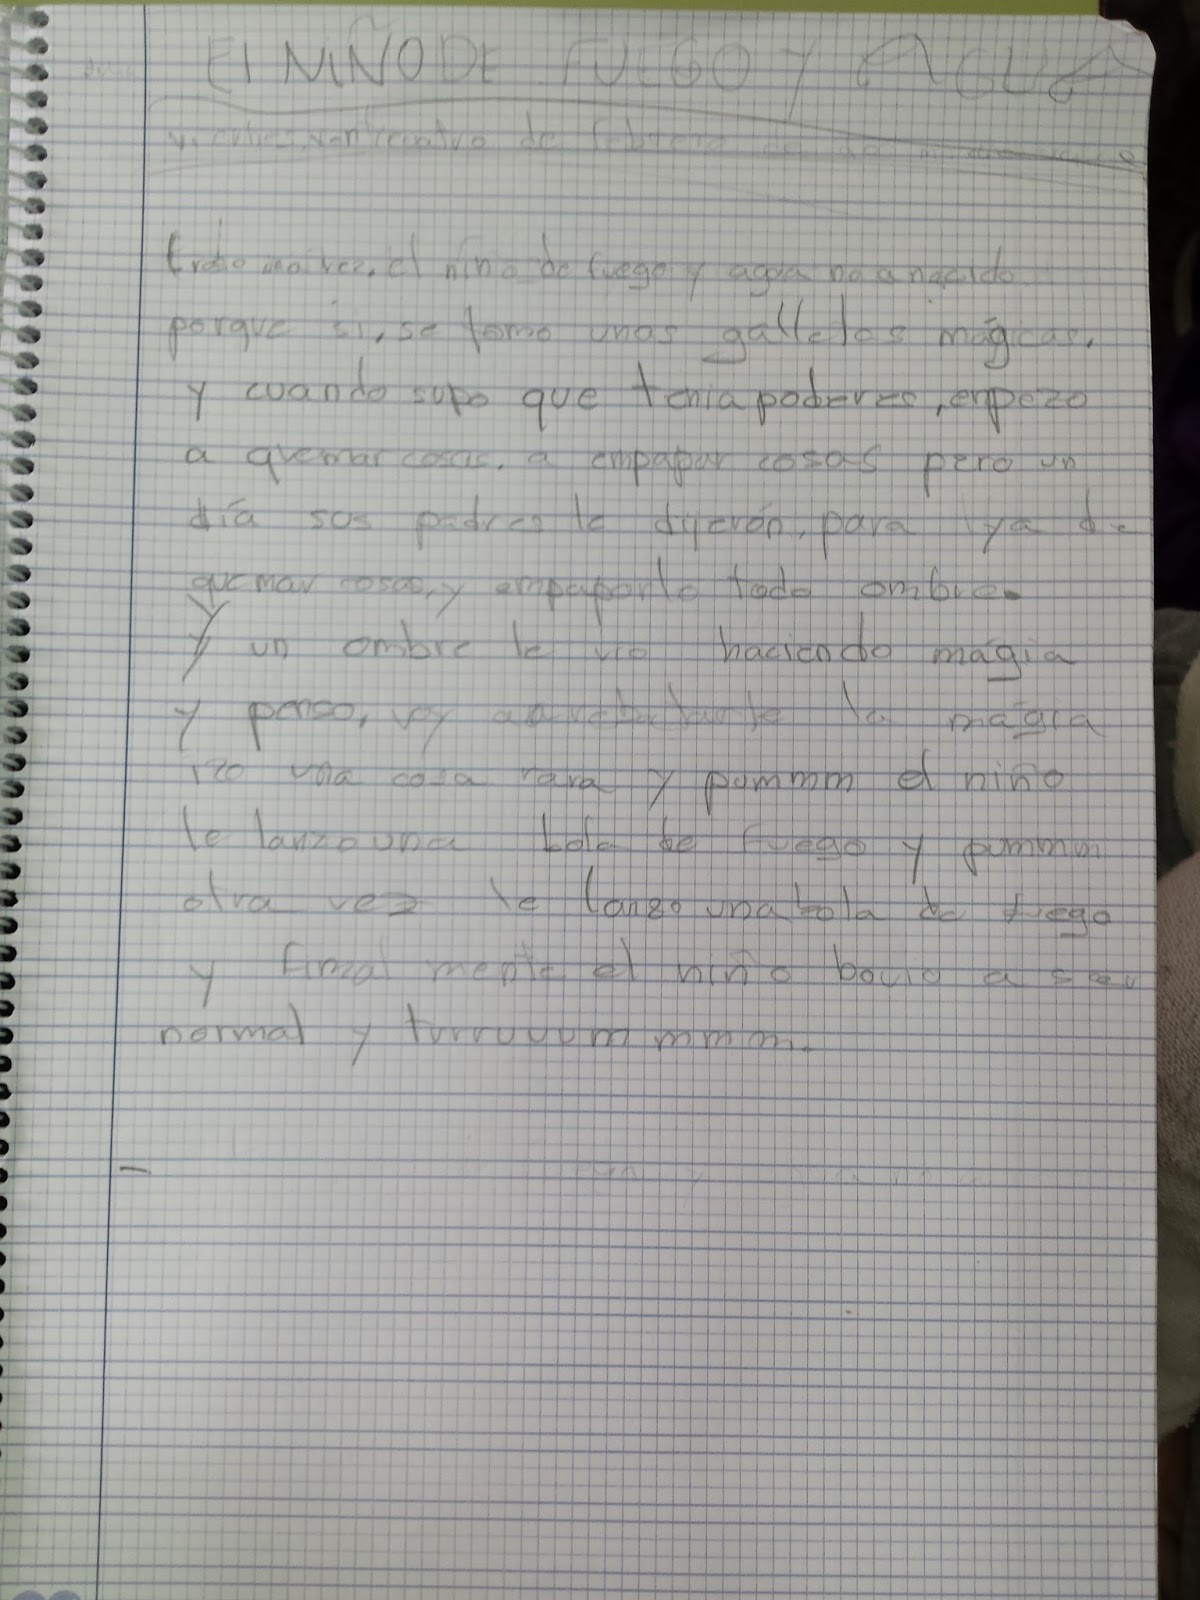 El NIÑO DE FUEGO Y AGUA
de febrero
vez, el niño de fuego y agua no a nacido
porque si, se tomo unas galletas mágicas,
y cuando supo que tenia poderes, enpezo
a quemar cosas, a empapar cosas pero un
día sos padres le dijerón, para ya de
quemar cosas, y empaparlo todo ombre.
y
y un ombre le vio haciendo mágia
y penso, voy la mágia
izo una cosa rara y pummm el niño
le lanzo una bola de fuego y pummm
otra vez le lanzo una bola de fuego
y final mente el niño bovio a ser
normal y